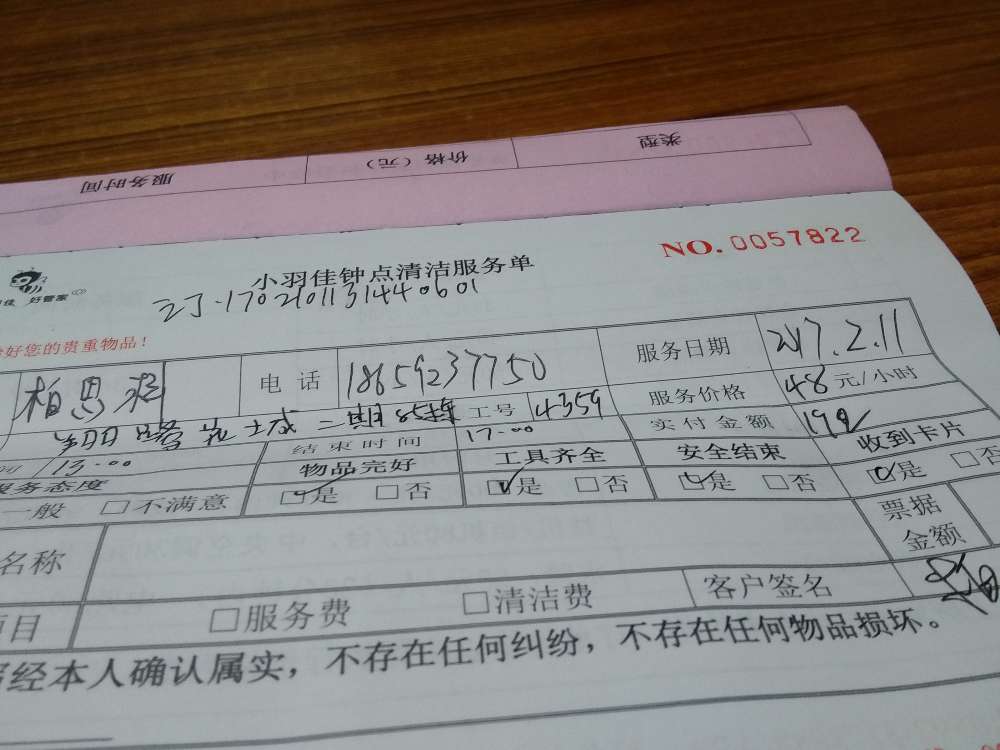 类型 价格（元） 服务时间
NO. 0057822
小羽佳钟点清洁服务单
好管家
170210131440601
好您的贵重物品！
电话 18659237750 服务日期 2017.2.11
工号 4359 服务价格 48 元/小时
二期85栋
13:00 结束时间 17:00 实付金额 192
服务态度 物品完好 工具齐全 安全结束 收到卡片
一般 □不满意 ☑是 □否 ☑是 □否 ☑是 □否 ☑是 □否
名称 票据金额
项目 □服务费 □清洁费 客户签名
经本人确认属实，不存在任何纠纷，不存在任何物品损坏。